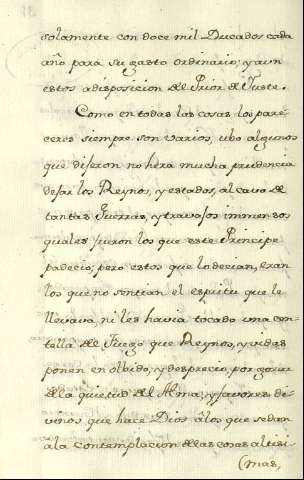 solamente con doce mil Ducados cada
año para su gasto ordinario; y aun
estos a disposicion del Prior de Juste.
Como en todas las cosas los pare-
ceres siempre son varios, ubo algunos
que dijeron no hera mucha prudencia
dejar los Reynos, y estados, al cavo de
tantas Guerras, y travajos inmensos
quales fueron los que este Principe
padecio; pero estos que lo decian, eran
los que no sentian el espiritu que le
llevava, ni les havia tocado una cen-
tella del Fuego que Reynos, y vidas
ponen en olbido, y desprecio, por gozar
de la quietud del Alma, y favores di-
vinos que hace Dios a los que se dan
a la contemplacion de las cosas altisi-
(mas,